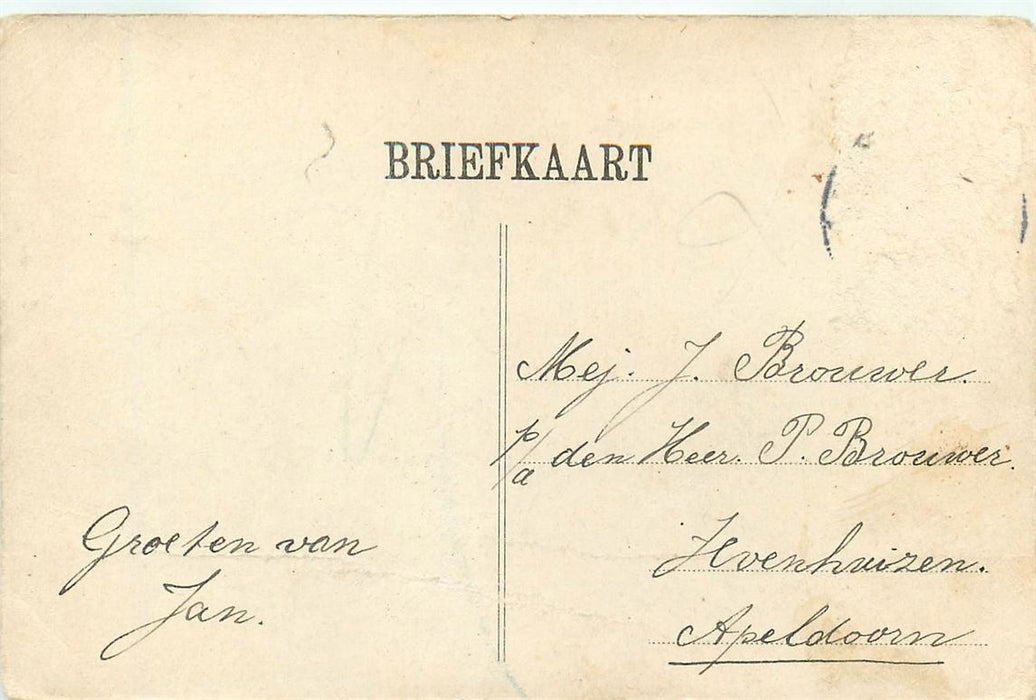 BRIEFKAART
Mej. J. Brouwer.
p/a den Heer. P. Brouwer.
Hvenhuizen.
Apeldoorn
Groeten van
Jan.